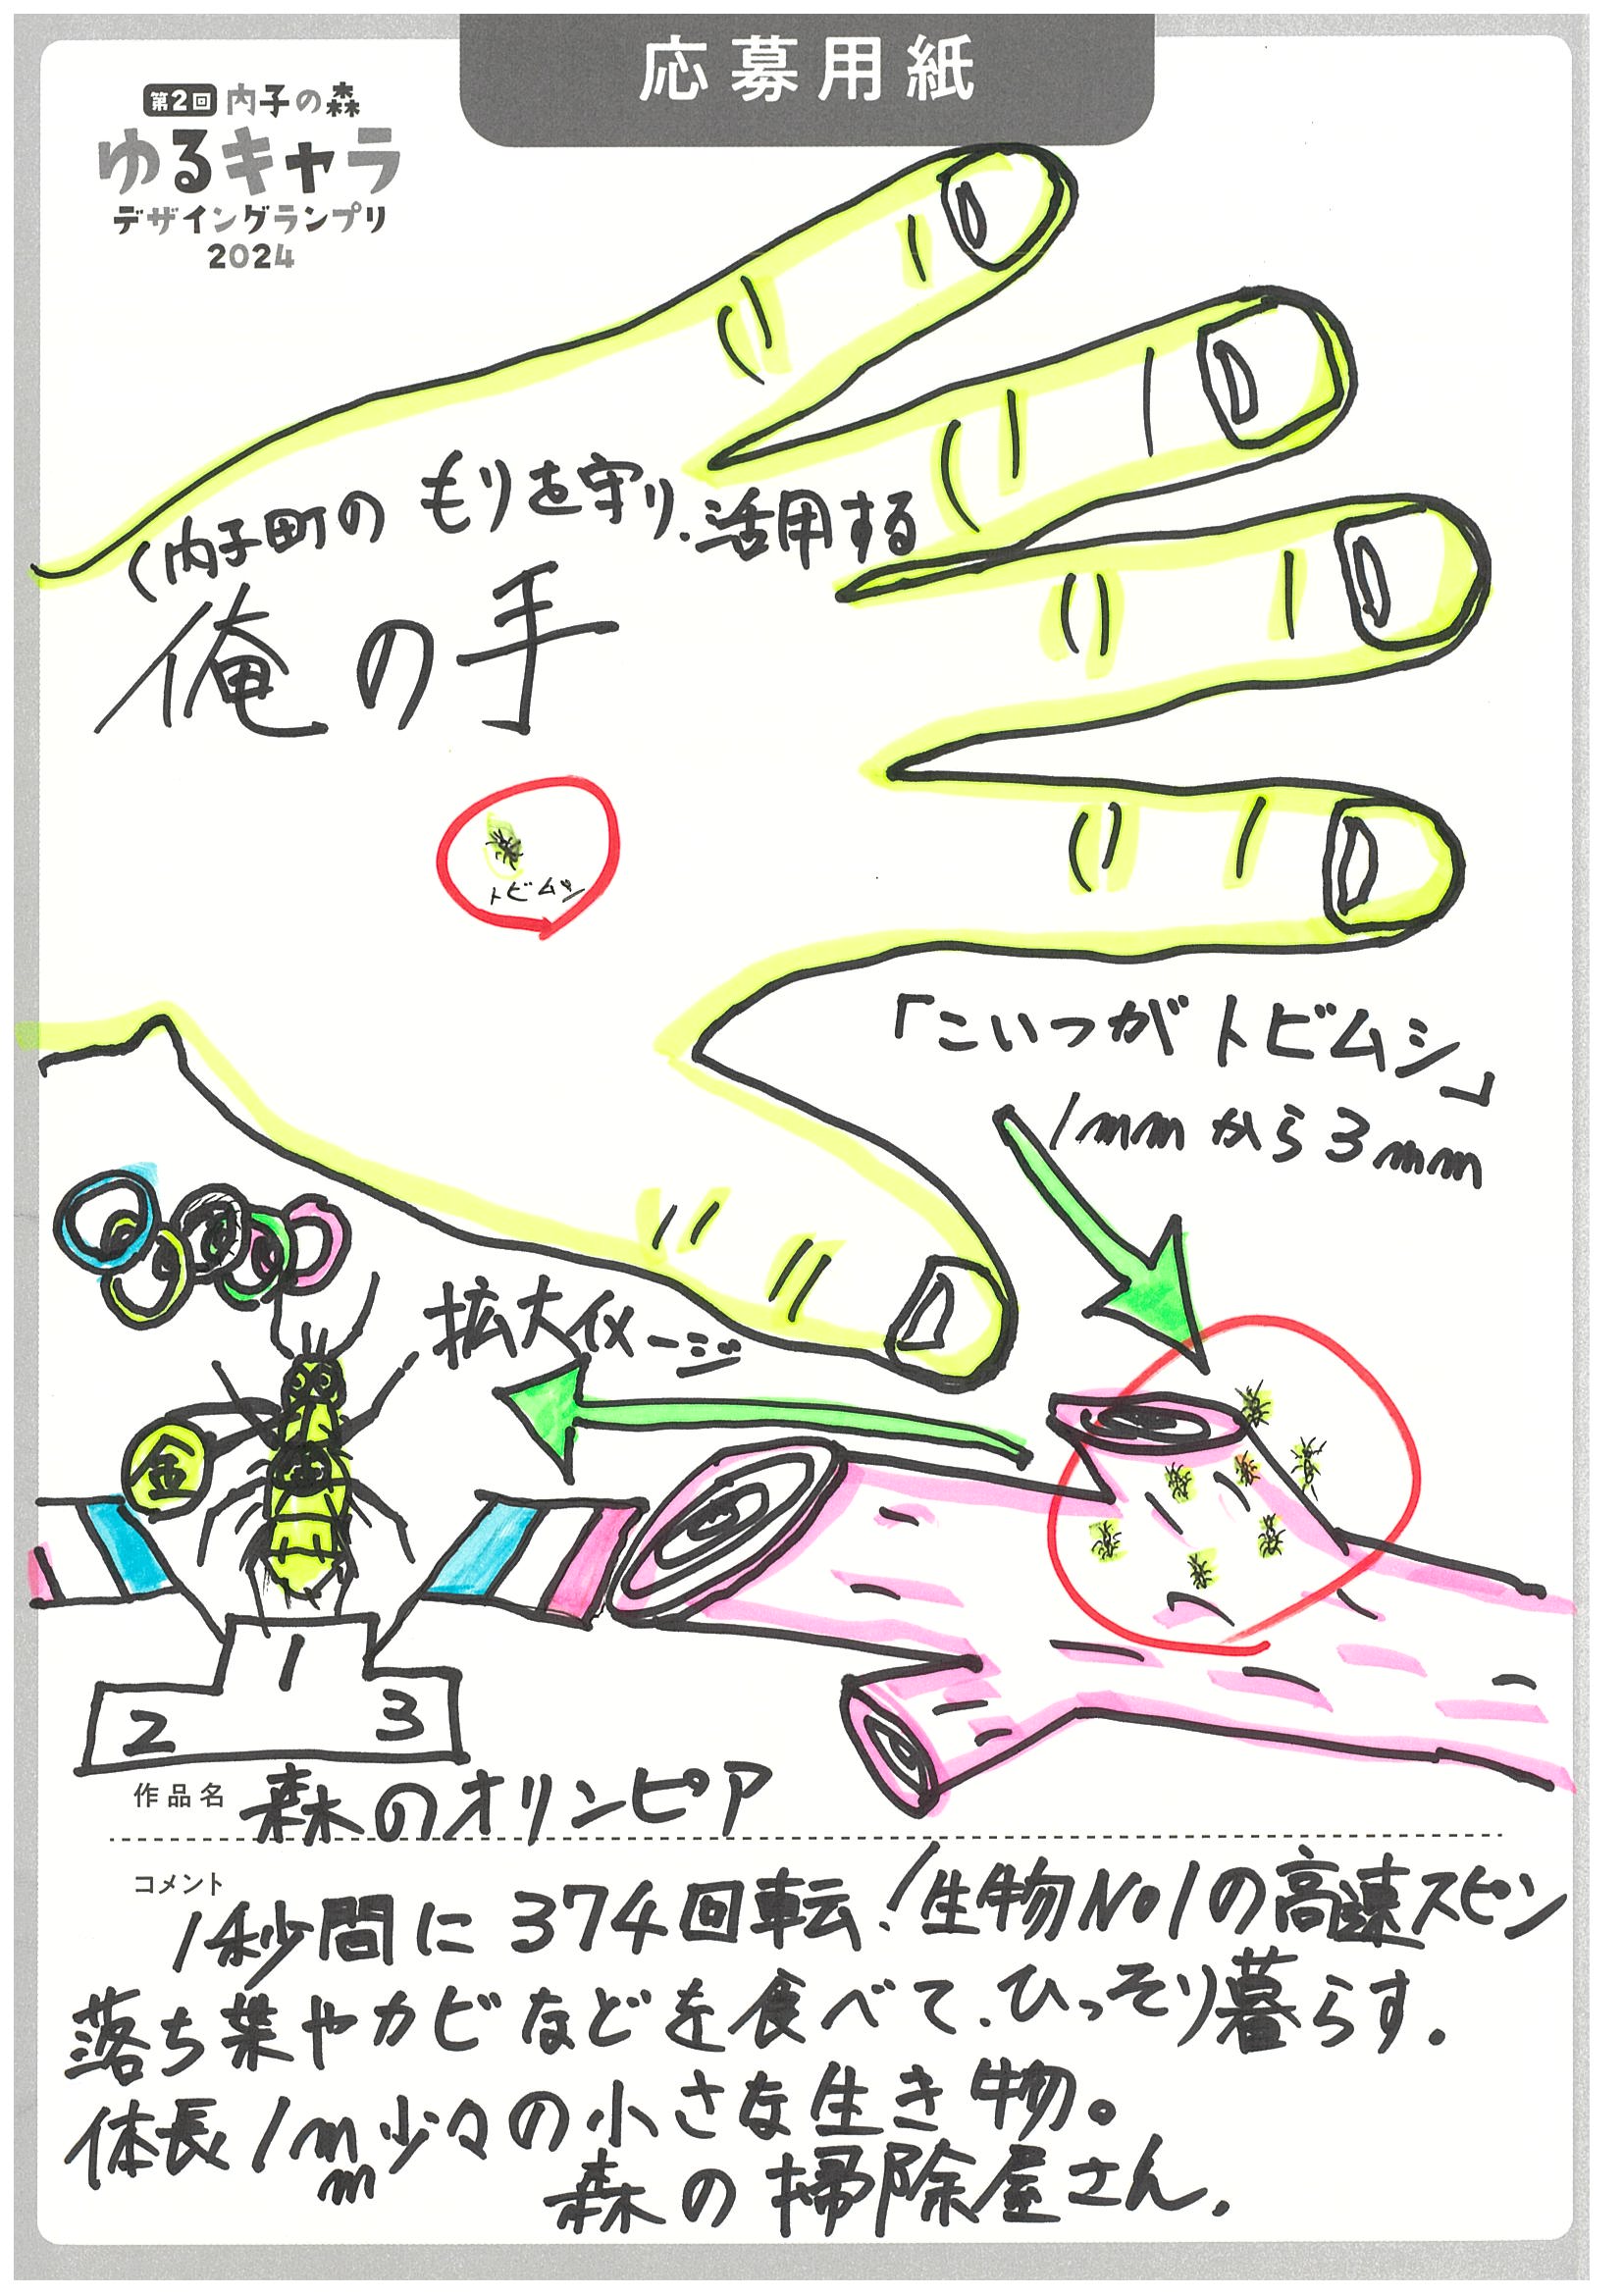 応募用紙
第2回 内子の森
ゆるキャラ
デザイングランプリ
2024
(内子町の もりを守り、活用する
俺の手
トビムシ
「こいつがトビムシ」
1mmから3mm
拡大イメージ
金
1
2 3
作品名 森のオリンピア
コメント
1秒間に374回転!生物No1の高速スピン
落ち葉やカビなどを食べて、ひっそり暮らす.
体長1mm少々の小さな生き物。
森の掃除屋さん.